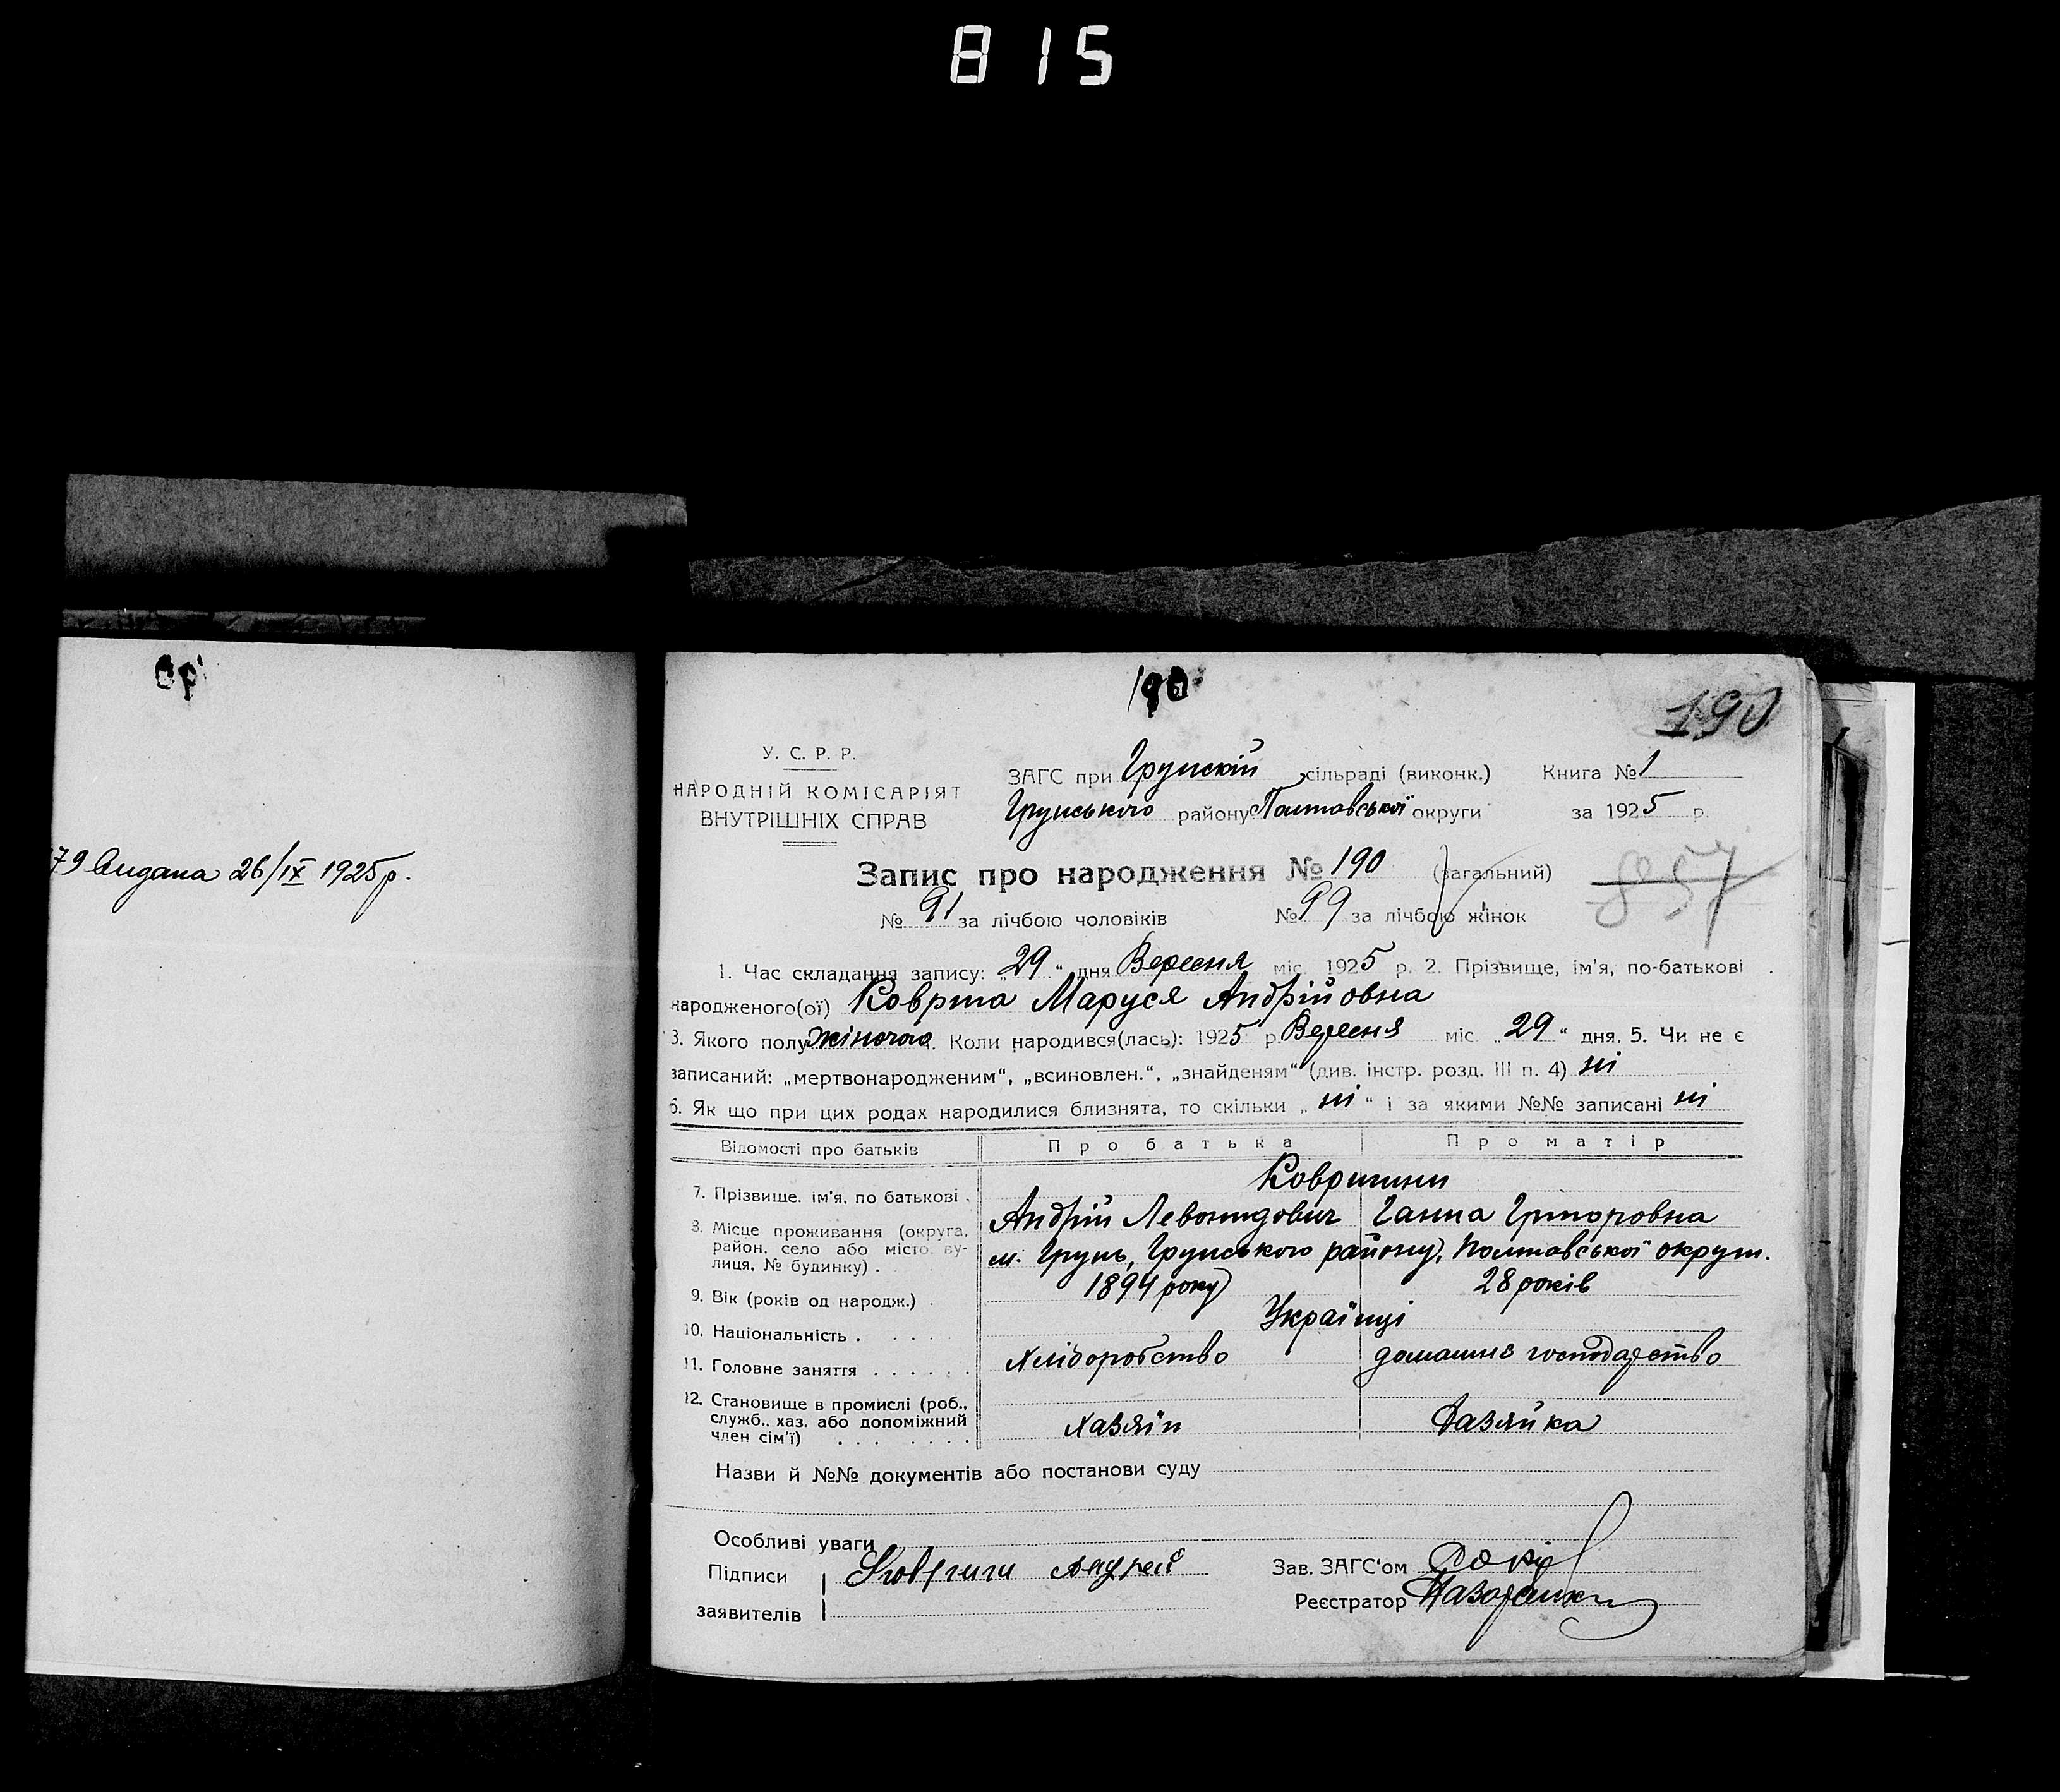 815
79 видана 26/IX 1925 р.
190
190
У. С. Р. Р.
НАРОДНІЙ КОМІСАРІЯТ
ВНУТРІШНІХ СПРАВ
ЗАГС при Грунскій сільраді (виконк.) Книга № 1
Грунського району Полтавської округи за 1925 р.
Запис про народження № 190 (загальний)
857
№ 91 за лічбою чоловіків № 99 за лічбою жінок
1. Час складання запису: „29“ дня Вересня міс. 1925 р. 2. Прізвище, ім'я, по-батькові
народженого(ої) Коврига Маруся Андрійовна
3. Якого полу жіночого. Коли народився(лась): 1925 р. Вересня міс. „29“ дня. 5. Чи не є
записаний: „мертвонародженим“, „всиновлен.“, „знайденям“ (див. інстр. розд. III п. 4) ні
6. Як що при цих родах народилися близнята, то скільки „ні“ і за якими №№ записані ні
Відомості про батьків Про батька Про матір
Ковригини
7. Прізвище, ім'я, по батькові . Андрій Левонидович Ганна Григоровна
8. Місце проживання (округа, район, село або місто, вулиця, № будинку) . м. Грунь, Грунського району, Полтавської округи.
9. Вік (років од народж.) . 1894 року 28 років
10. Національність . . . . . Українці
11. Головне заняття . . . . . . Хліборобство домашнє господарство
12. Становище в промислі (роб.,
служб., хаз. або допоміжний
член сім'ї) . . . . . . . Хазяїн Хазяйка
Назви й №№ документів або постанови суду
Особливі уваги
Підписи
заявителів
Коврига Андрей
Зав. ЗАГС'ом
Реєстратор